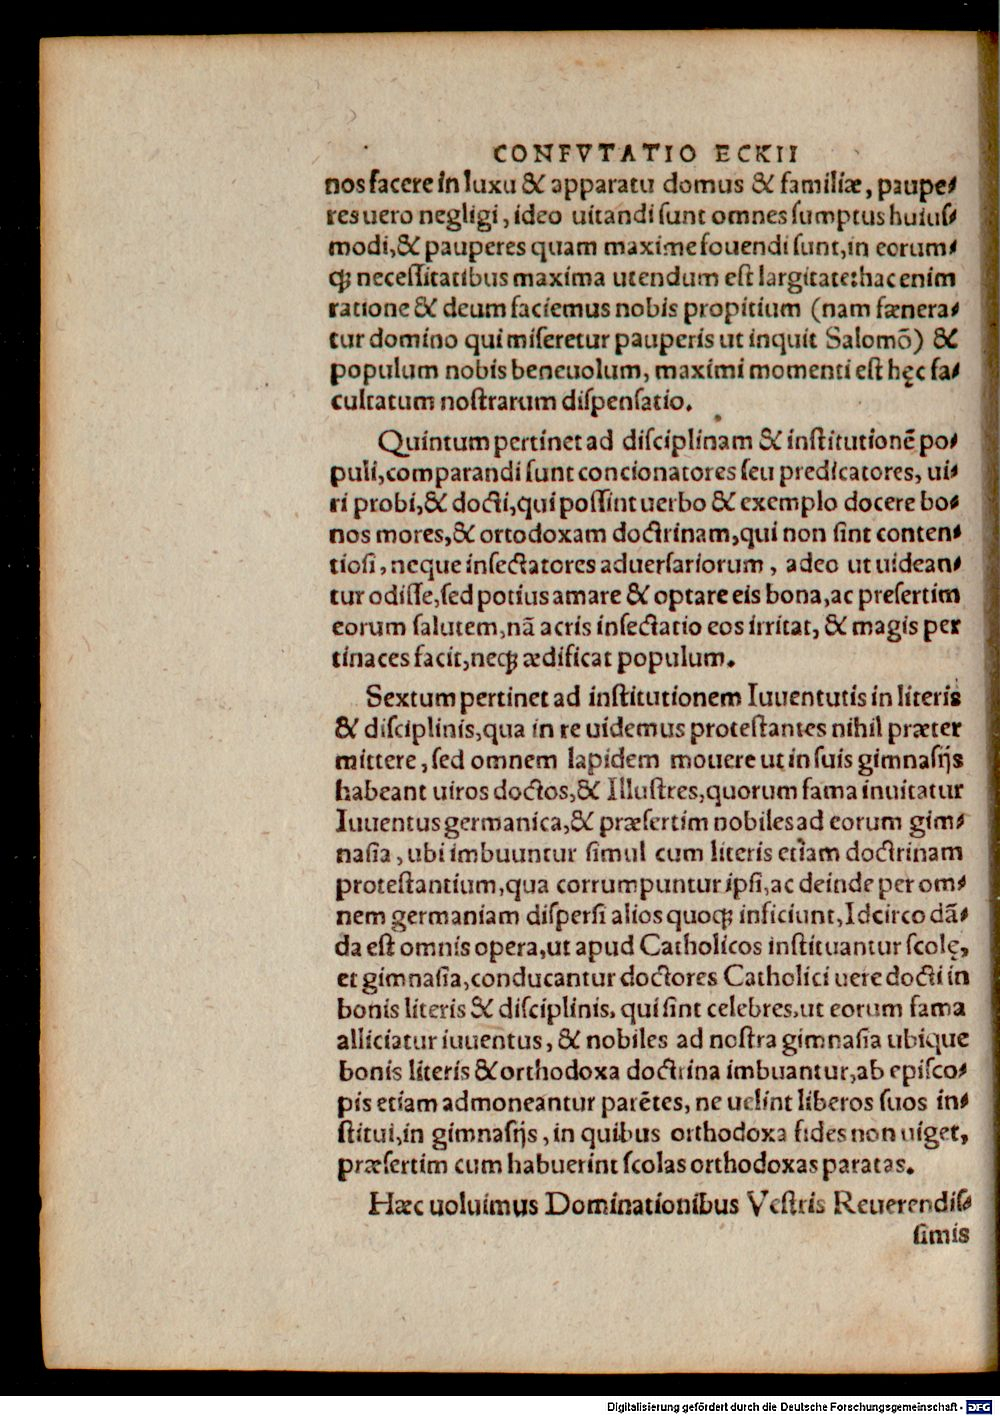 CONFVTATIO ECKII
nos facere in luxu & apparatu domus & familiæ, paupe⸗
res uero negligi, ideo uitandi sunt omnes sumptus huius⸗
modi, & pauperes quam maxime fouendi sunt, in eorum⸗
qꝫ necessitatibus maxima utendum est largitate: hac enim
ratione & deum faciemus nobis propitium (nam fænera⸗
tur domino qui miseretur pauperis ut inquit Salomõ) &
populum nobis beneuolum, maximi momenti est hęc fa⸗
cultatum nostrarum dispensatio.
Quintum pertinet ad disciplinam & institutionẽ po⸗
puli, comparandi sunt concionatores seu predicatores, ui⸗
ri probi, & docti, qui possint uerbo & exemplo docere bo⸗
nos mores, & ortodoxam doctrinam, qui non sint conten⸗
tiosi, neque insectatores aduersariorum, adeo ut uidean⸗
tur odisse, sed potius amare & optare eis bona, ac presertim
eorum salutem, nã acris insectatio eos irritat, & magis per
tinaces facit, neqꝫ ædificat populum.
Sextum pertinet ad institutionem Iuuentutis in literis
& disciplinis, qua in re uidemus protestantes nihil præter
mittere, sed omnem lapidem mouere ut in suis gimnasijs
habeant uiros doctos, & Illustres, quorum fama inuitatur
Iuuentus germanica, & præsertim nobiles ad eorum gim⸗
nasia, ubi imbuuntur simul cum literis etiam doctrinam
protestantium, qua corrumpuntur ipsi, ac deinde per om⸗
nem germaniam dispersi alios quoqꝫ inficiunt, Idcirco dã⸗
da est omnis opera, ut apud Catholicos instituantur scolę,
et gimnasia, conducantur doctores Catholici uere docti in
bonis literis & disciplinis, qui sint celebres, ut eorum fama
alliciatur iuuentus, & nobiles ad nostra gimnasia ubique
bonis literis & orthodoxa doctrina imbuantur, ab episco⸗
pis etiam admoneantur parẽtes, ne uelint liberos suos in⸗
stitui, in gimnasijs, in quibus orthodoxa fides non uiget,
præsertim cum habuerint scolas orthodoxas paratas.
Hæc uoluimus Dominationibus Vestris Reuerendis⸗
simis
Digitalisierung gefördert durch die Deutsche Forschungsgemeinschaft - DFG